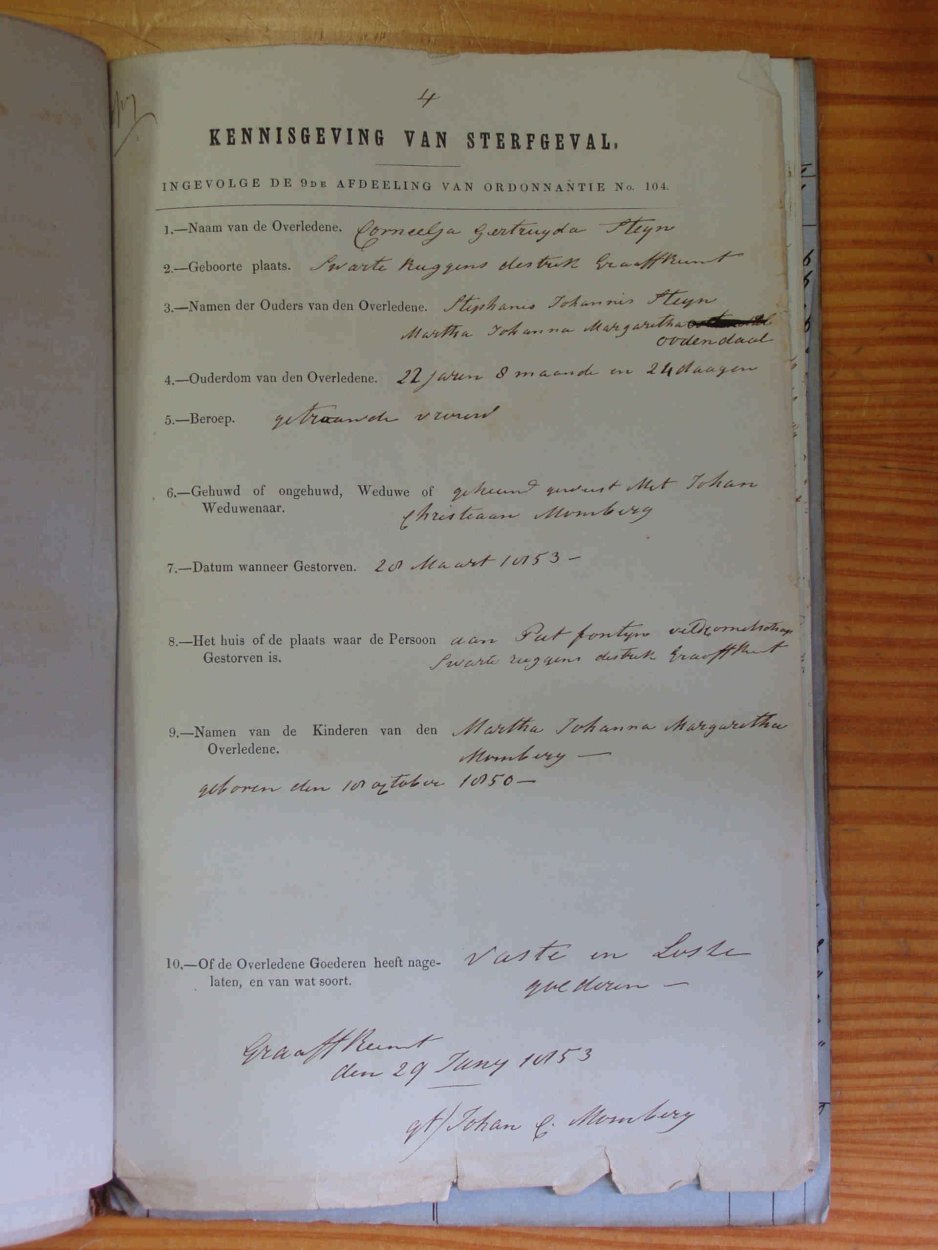 4
KENNISGEVING VAN STERFGEVAL.
INGEVOLGE DE 9DE AFDEELING VAN ORDONNANTIE No. 104.
1.—Naam van de Overledene. Corneelja Gertruyda Steyn
2.—Geboorte plaats. Swarte Ruggens destrik Graaff Reunt
3.—Namen der Ouders van den Overledene. Stephanis Johannis Steyn
Martha Johanna Margaretha
oodendaal
4.—Ouderdom van den Overledene. 22 jaren 8 maande en 24 daagen
5.—Beroep. getraande vrouw
6.—Gehuwd of ongehuwd, Weduwe of geheund geweest Met Johan
Weduwenaar. Christiaan Momberg
7.—Datum wanneer Gestorven. 28 Maart 1853 —
8.—Het huis of de plaats waar de Persoon aan Piet fontyn veldcornetschap
Gestorven is. Swarte ruggens destrik Graaff Reunt
9.—Namen van de Kinderen van den Martha Johanna Margaretha
Overledene. Momberg —
geboren den 18 october 1850 —
10.—Of de Overledene Goederen heeft nage- Vaste en Losse
laten, en van wat soort. goederen —
Graaff Reunt
den 29 Juny 1853
gt/ Johan C. Momberg